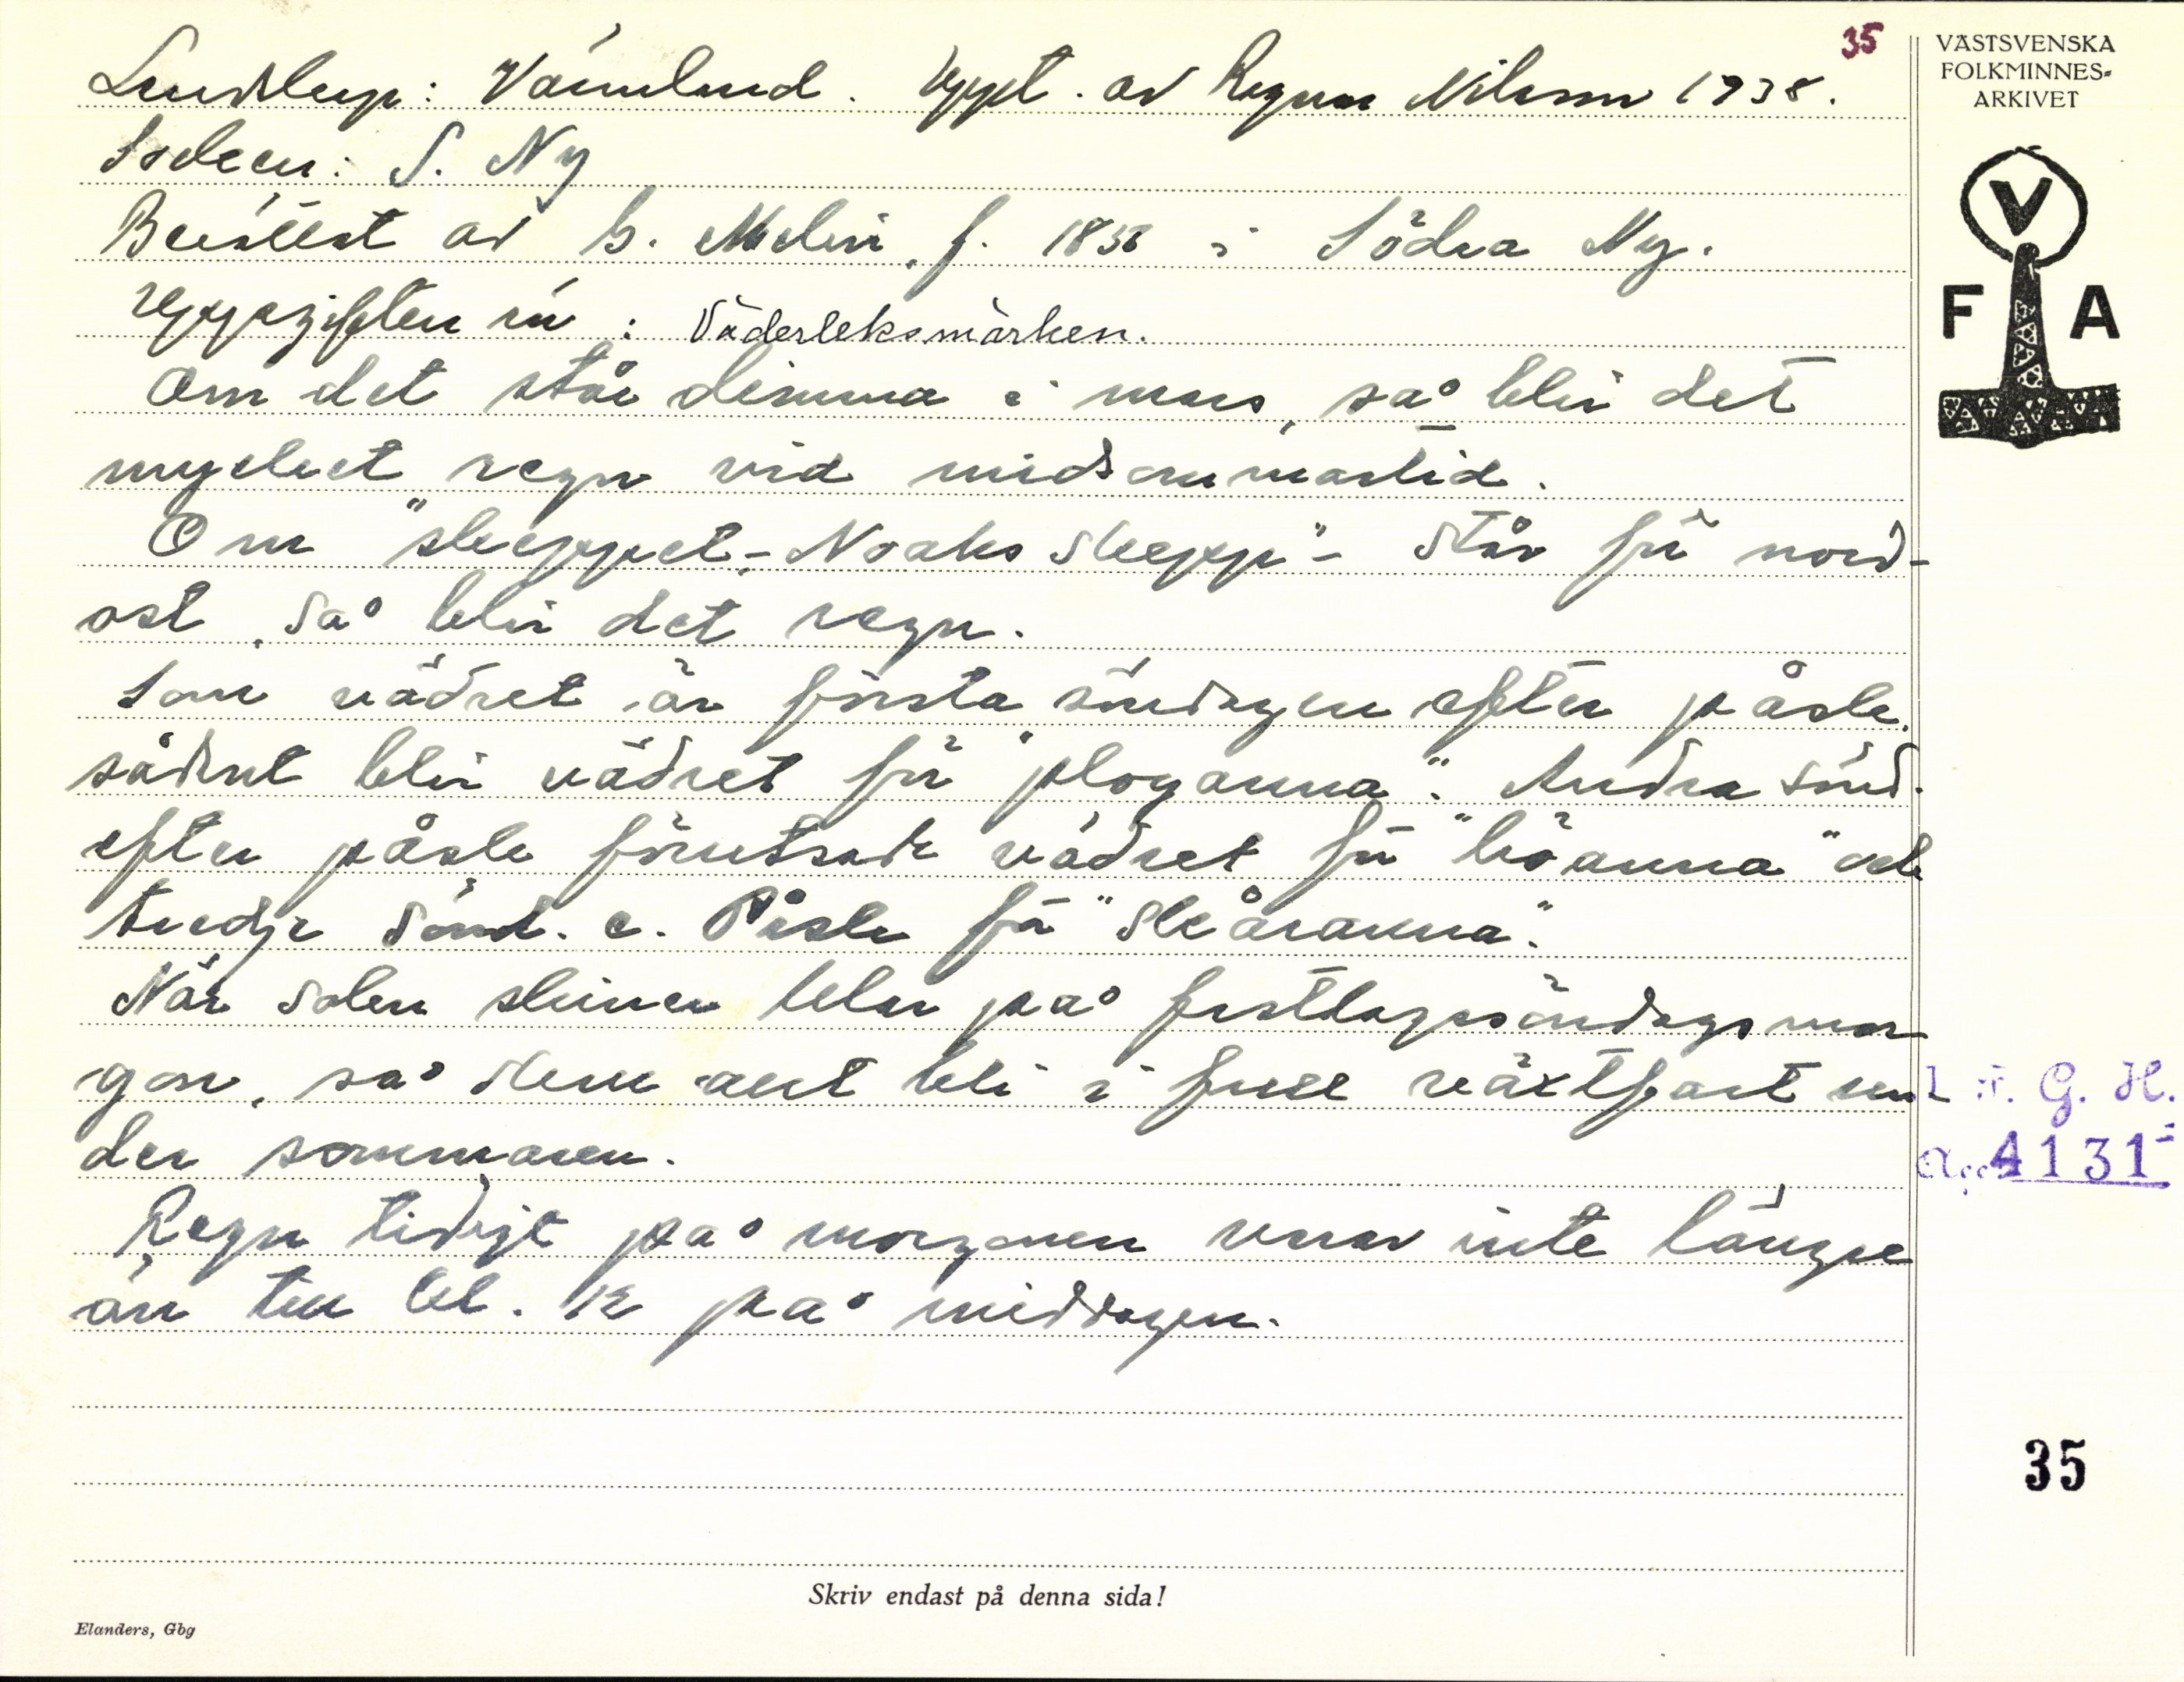 35
Landskap: Värmland. Uppt. av Ragnar Nilsson 1938.
Socken: S. Ny
Berättat av G. Melin, f. 1838 i Södra Ny.
Uppgiften rör: Väderleksmärken.
Om det står dimma i mars, så blir det
mycket regn vid midsommartid.
Om "skeppet, - Noaks skepp" - står för nord-
ost, så blir det regn.
Som vädret är första söndagen efter påsk,
sådant blir vädret för "plogанna". Andra sönd.
efter påsk förutsade vädret för "höanna" och
tredje sönd. e. Påsk för "skåranna".
När solen skiner klar på fastlagssöndagsmor
gon, så skall allt bli i full växtfart un
der sommaren.
Regn tidigt på morgonen varar inte längre
än till kl. 12 på middagen.
VÄSTSVENSKA
FOLKMINNES-
ARKIVET
V
F A
I. F. G. H.
Acc. 4131
35
Skriv endast på denna sida!
Elanders, Gbg